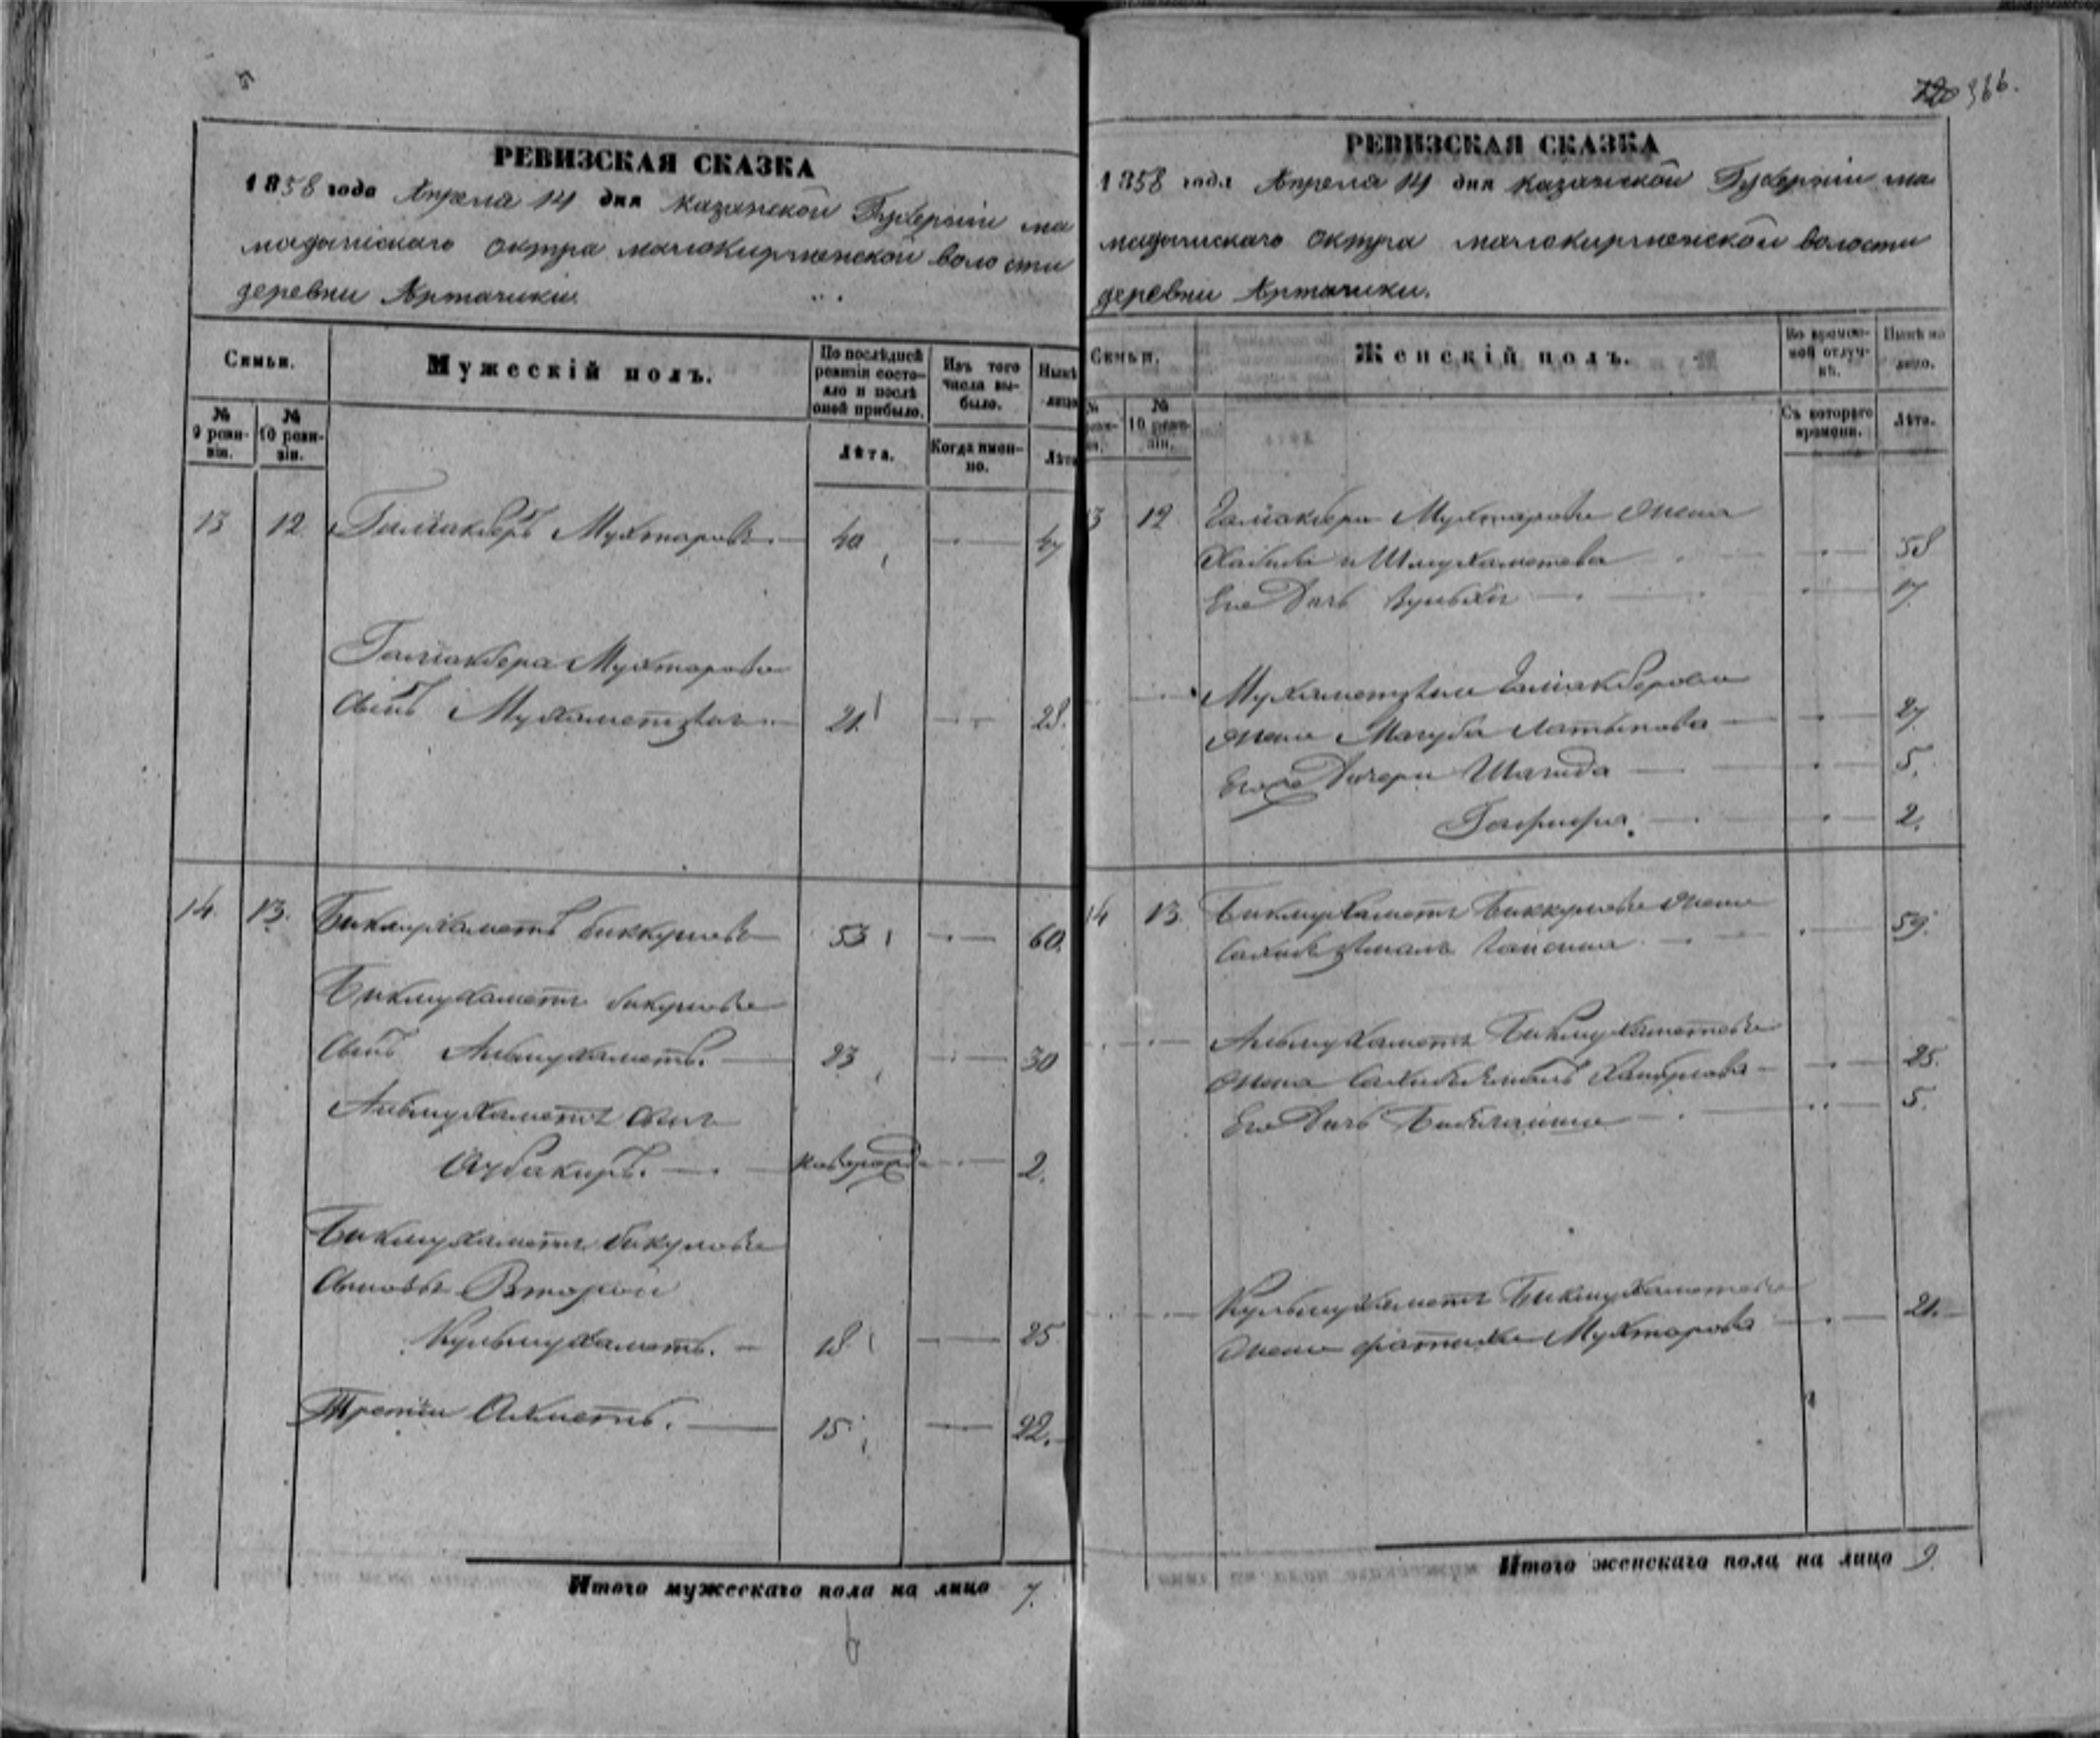 РЕВИЗСКАЯ СКАЗКА
1858 года Апреля 14 дня Казанской Губернии Ма
мадышскаго округа малокирменской волости
деревни Артачики
Семьи.
Мужескій полъ.
По послѣдней ревизіи состояло и послѣ оной прибыло.
Изъ того числа выбыло.
Нынѣ
лицо
№ 9 ревизіи.
№ 10 ревизіи.
Лѣта.
Когда именно.
Лѣта
13 12 Галіакберъ Мухтаровъ 40 47
Галіакбера Мухтарова
сынъ Мухаметзянъ 21 28.
14. 13. Бикмухаметъ Биккуловъ 53 60.
Бикмухамета Бикулова
сынъ Альмухаметъ. 23 30
Альмухамета сынъ
Аубакиръ. новорожд 2.
Бикмухамета Бикулова
сыновья Второй
Кульмухаметъ. 18 25
Третій Ахметъ. 15 22.
Итого мужескаго пола на лицо 7.
366.
РЕВИЗСКАЯ СКАЗКА
1858 года Апреля 14 дня Казанской Губерніи Ма
мадышскаго округа малокирменской волости
деревни Артачики.
Семьи.
Женскій полъ.
Во временной отлучкѣ.
Нынѣ на лицо.
№ 10 ревизіи.
Съ котораго времени.
Лѣта.
13 12 Галіакбера Мухтарова жена
58
Его Дочь 17
Мухаметзяна Галіакберова
жена Магуба Латыпова 27.
Его Дочери Шагида 5.
2.
14 13. Бикмухамета Биккулова жена
59.
Альмухамета Бикмухаметова
жена 25.
Его Дочь 5.
Кульмухамета Бикмухаметова
жена Фатиха Мухтарова 21.
Итого женскаго пола на лицо 9.